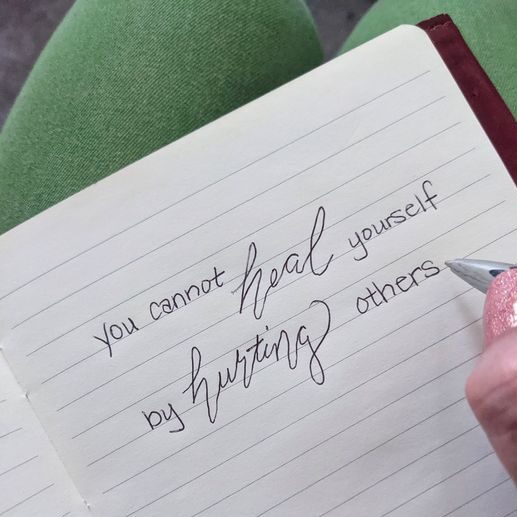 you cannot heal yourself
by hurting others